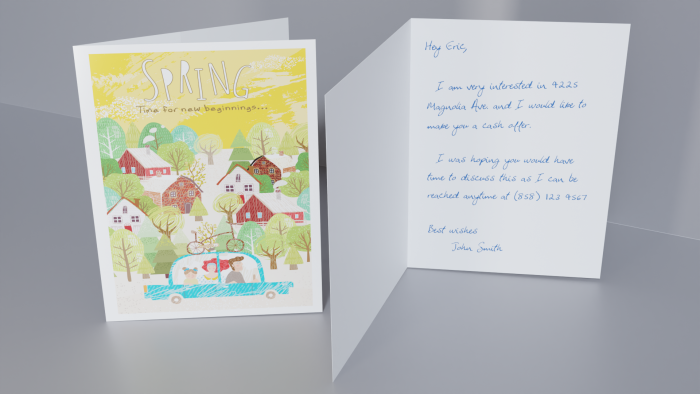 SPRING
Time for new beginnings...
Hey Eric,
I am very interested in 4225
Magnolia Ave. and I would like to
make you a cash offer.
I was hoping you would have
time to discuss this as I can be
reached anytime at (858) 123 4567
Best wishes
John Smith